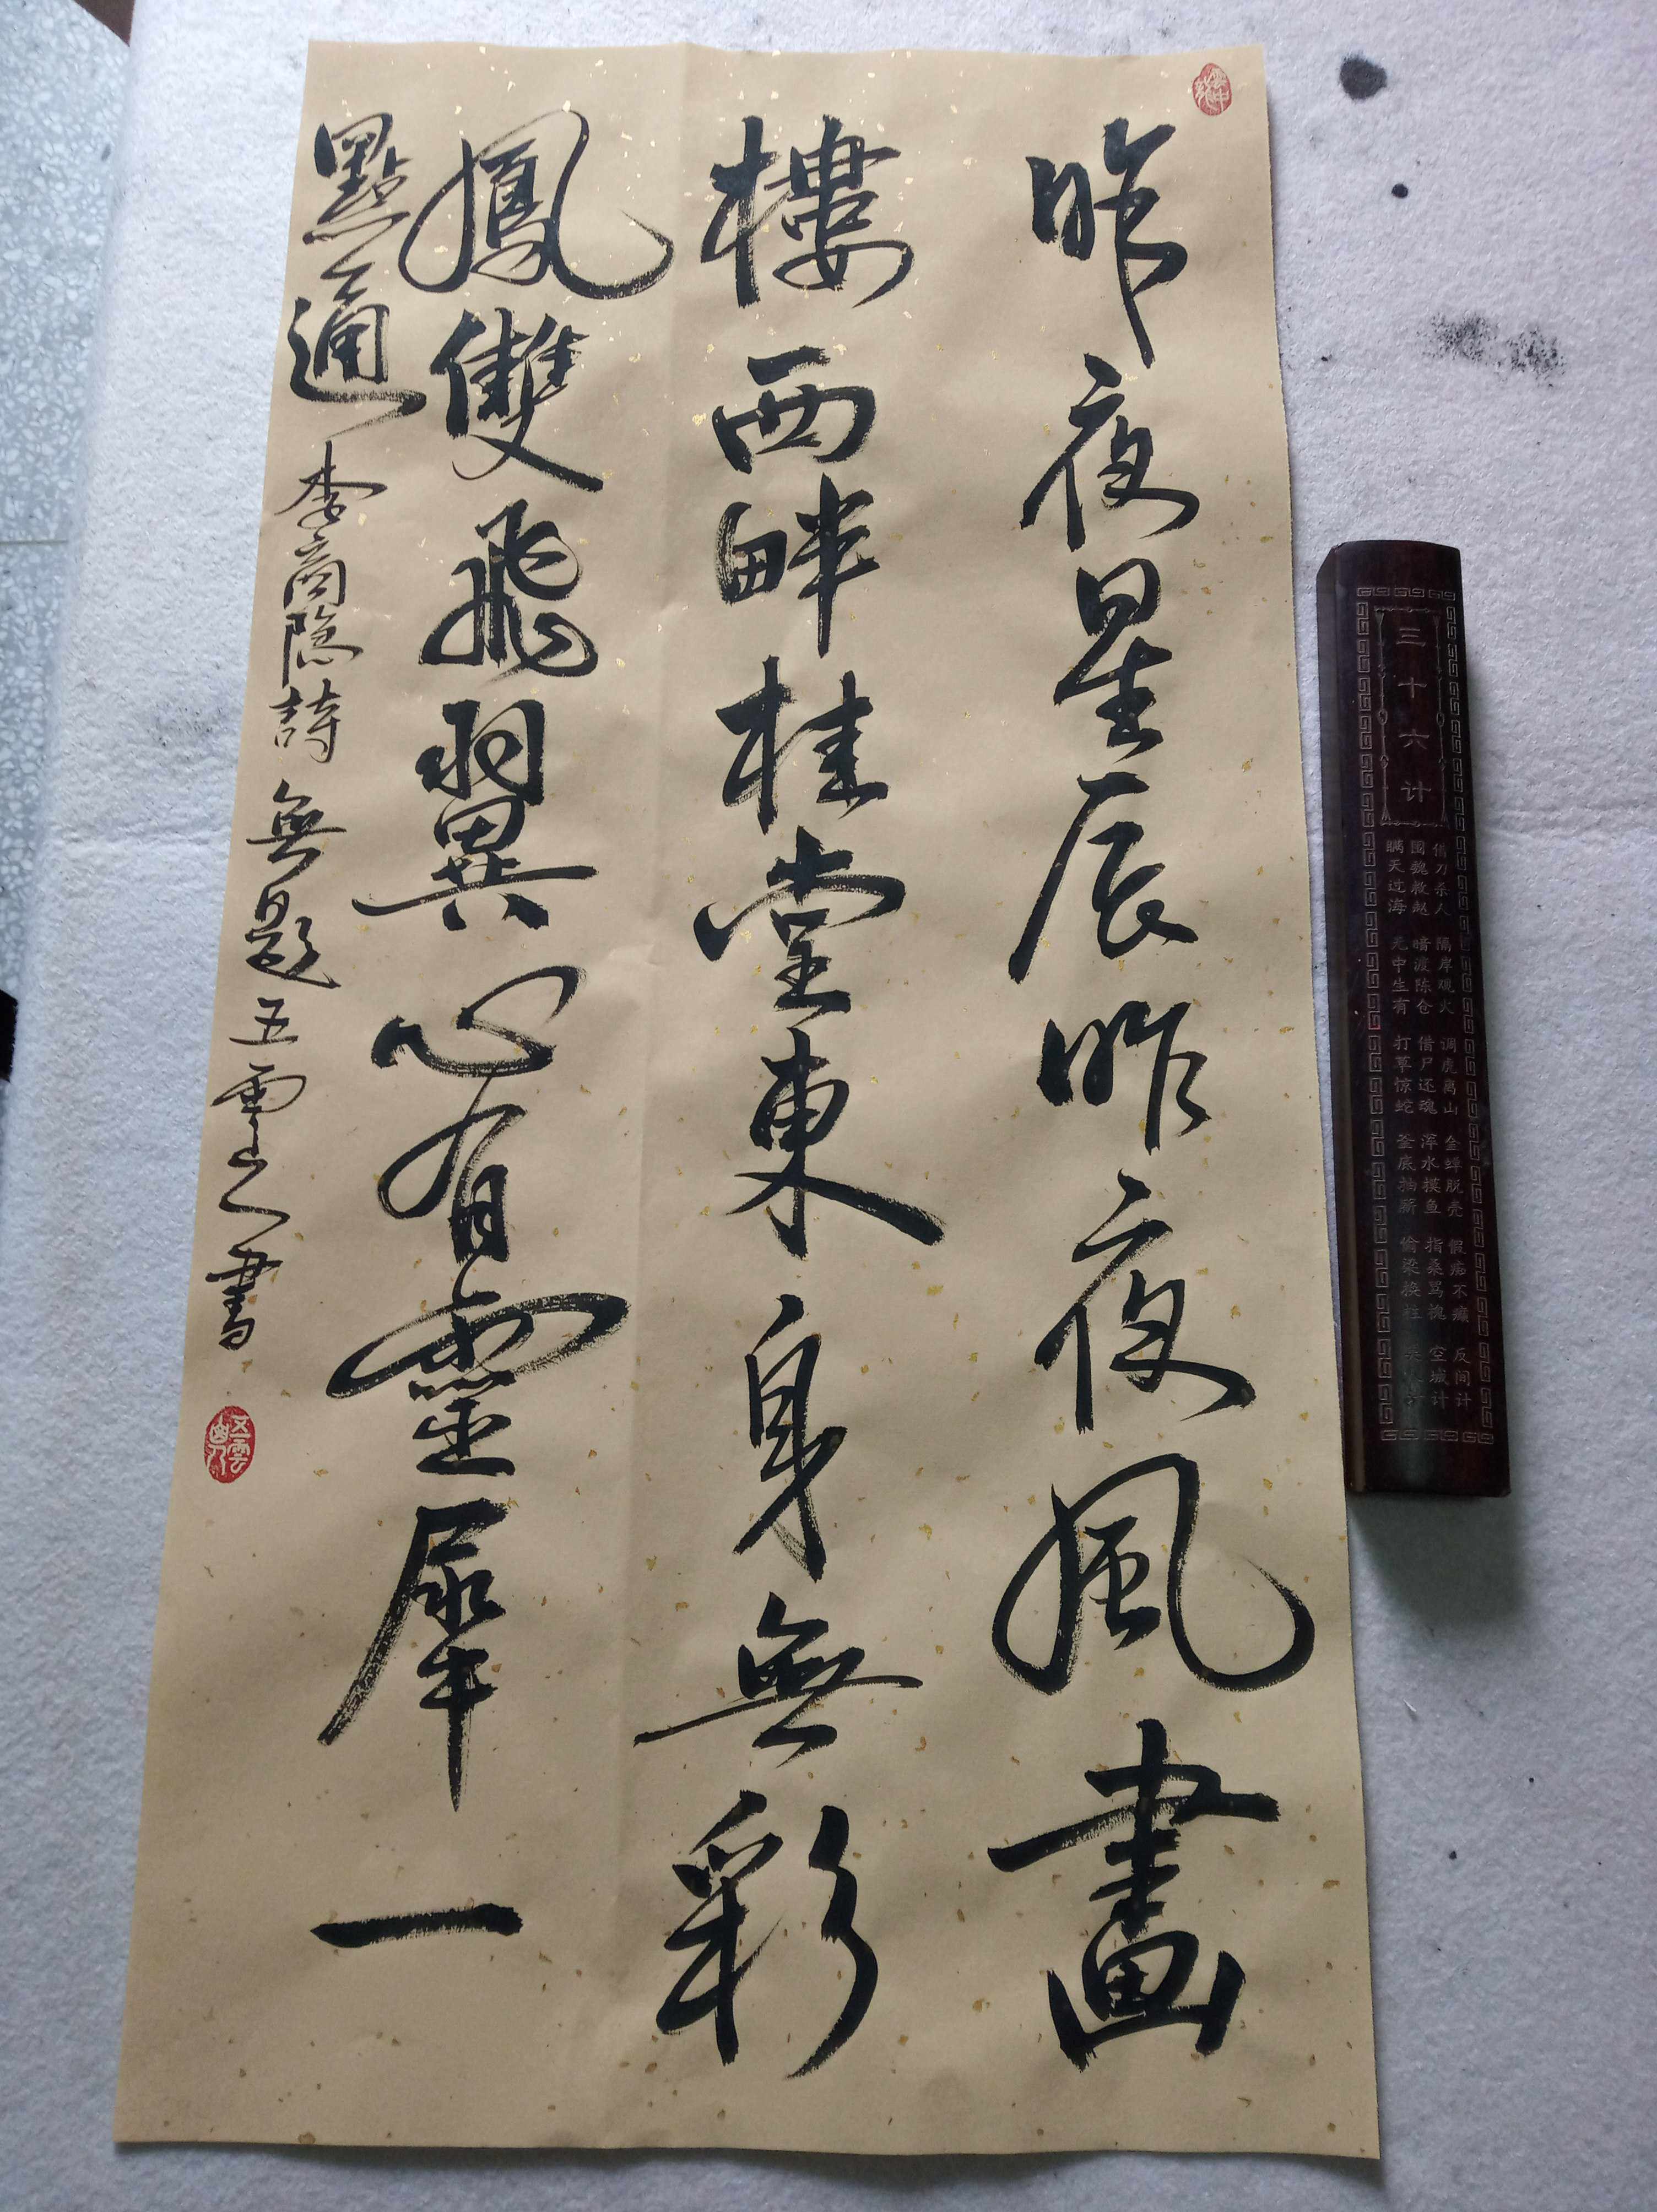 昨夜星辰昨夜風畫
樓西畔桂堂東身無彩
鳳雙飛翼心有靈犀一
點通 李商隐詩 無題 五雲山人書
五雲山人
三十六计
瞒天过海 无中生有 打草惊蛇 釜底抽薪 偷梁换柱 美人计
围魏救赵 暗渡陈仓 借尸还魂 浑水摸鱼 指桑骂槐 空城计
借刀杀人 隔岸观火 调虎离山 金蝉脱壳 假痴不癫 反间计